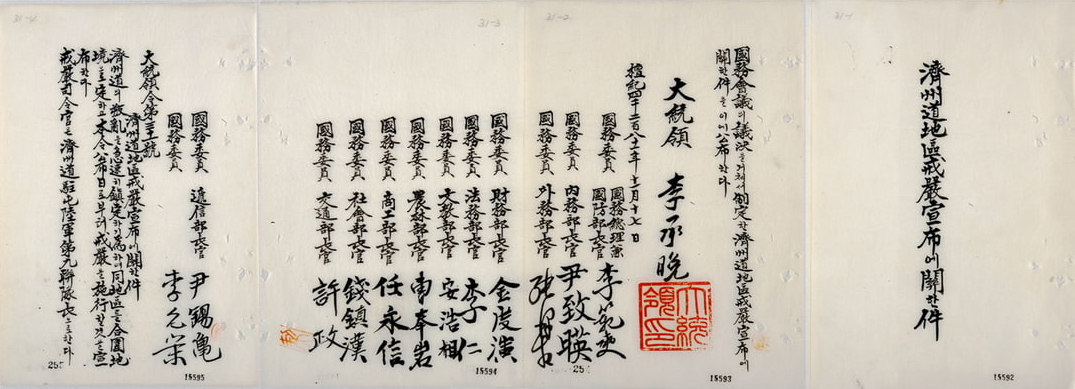 31-1
濟州道地區戒嚴宣布에關한件
15592
31-2
國務會議의議決을거쳐서制定한濟州道地區戒嚴宣布에
關한件을이에公布한다
大統領 李承晩
大統領印
檀紀四千二百八十一年十一月十七日
國務委員 國務總理兼
國防部長官 李範奭
國務委員 內務部長官 尹致暎
國務委員 外務部長官
15593
31-3
國務委員 財務部長官 金度演
國務委員 法務部長官 李仁
國務委員 文敎部長官 安浩相
國務委員 農林部長官 曺奉岩
國務委員 商工部長官 任永信
國務委員 社會部長官 錢鎭漢
國務委員 交通部長官 許政
15594
31-4
國務委員 遞信部長官 尹錫龜
國務委員 李允榮
大統領令第三十一號
濟州道地區戒嚴宣布에關한件
濟州道의叛亂을急速히鎭定하기爲하여同地區를合圍地
境으로定하고本令公布日로부터戒嚴을施行할것을宣
布한다
戒嚴司令官은濟州道駐屯陸軍第九聯隊長으로한다
15595